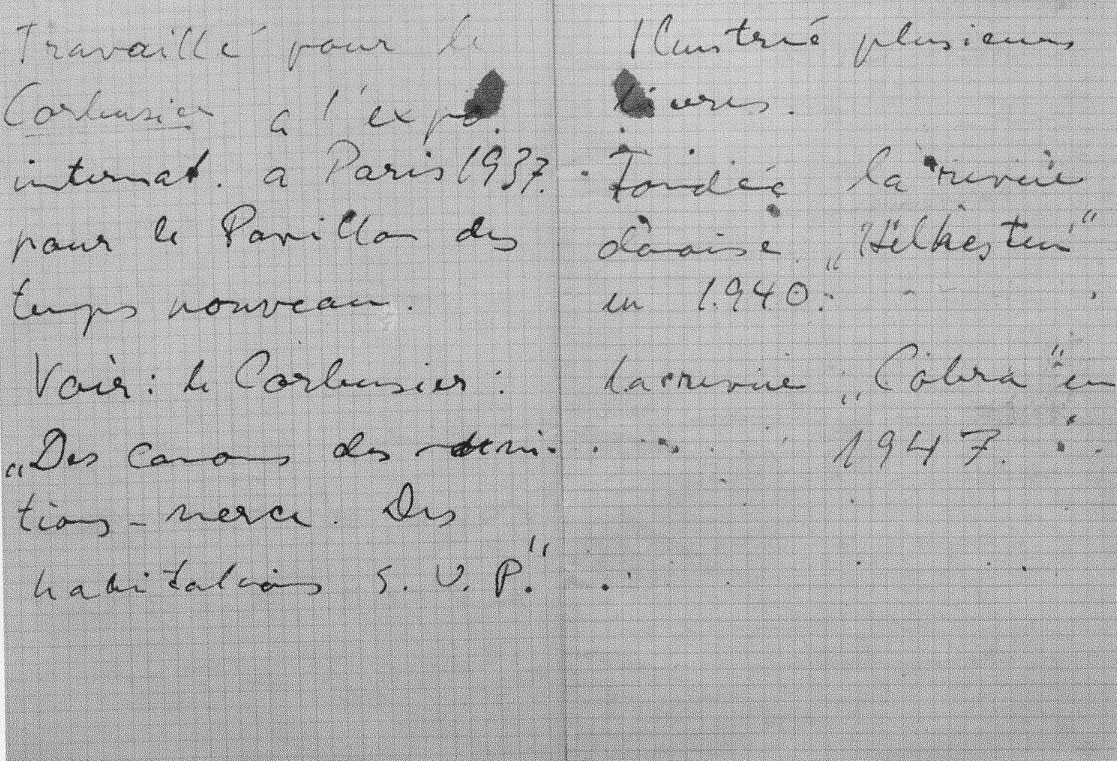 Travaillé pour le
Corbusier a l'expo.
internat. a Paris 1937.
pour le Pavillon des
temps nouveau.
Voir : le Corbusier :
„Des canons des muni-
tions - merci. Des
habitations S. V. P."
Ilustrié plusieurs
livres.
Fondée la revue
danoise „Helhesten"
en 1940.
La revue „Cobra" en
1947.